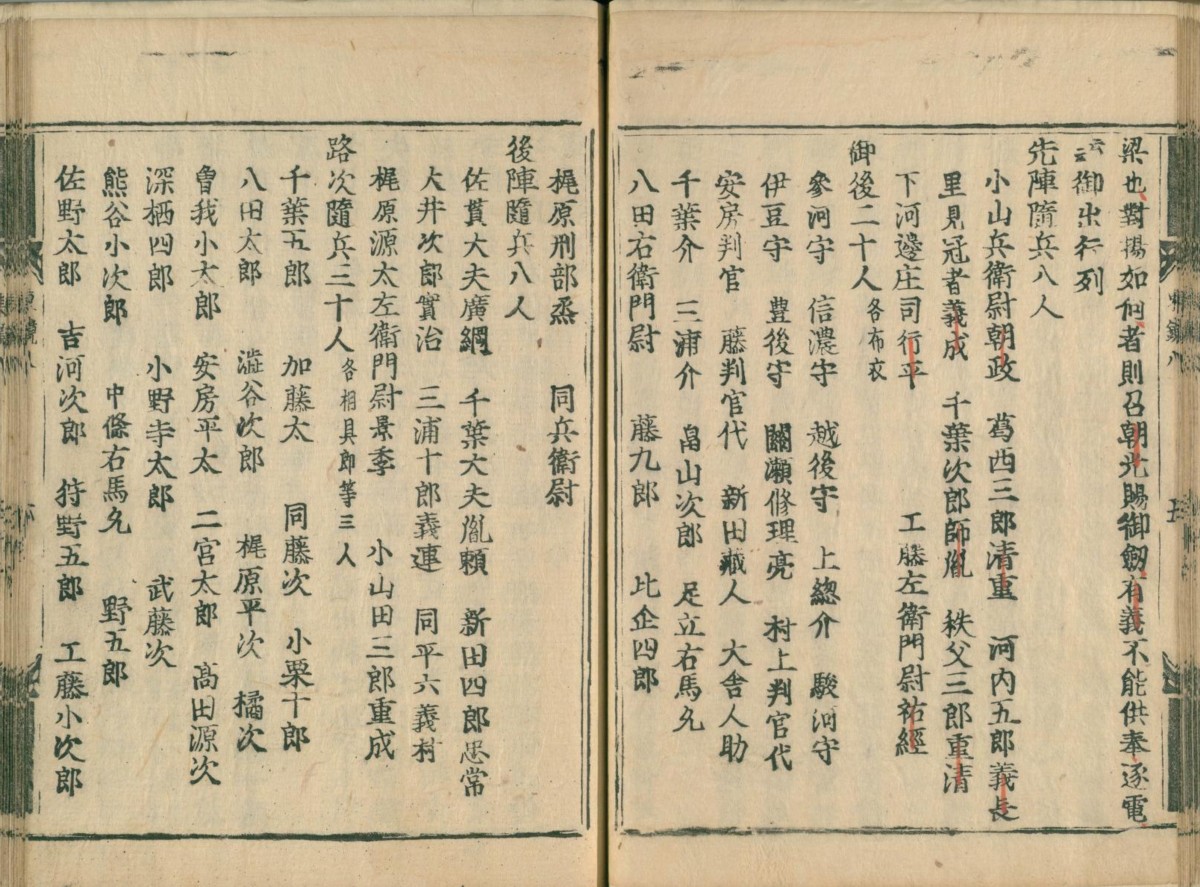 梁也對揚如何者則召朝光賜御劔有義不能供奉逐電
云云御出行列
先陣隨兵八人
小山兵衛尉朝政 葛西三郎清重 河内五郎義長
里見冠者義成 千葉次郎師胤 秩父三郎重清
下河邊庄司行平 工藤左衛門尉祐經
御後二十人各布衣
參河守 信濃守 越後守 上總介 駿河守
伊豆守 豊後守 關瀬修理亮 村上判官代
安房判官 藤判官代 新田藏人 大舎人助
千葉介 三浦介 畠山次郎 足立右馬允
八田右衛門尉 藤九郎 比企四郎
梶原刑部烝 同兵衛尉
後陣隨兵八人
佐貫大夫廣綱 千葉大夫胤頼 新田四郎忠常
大井次郎實治 三浦十郎義連 同平六義村
梶原源太左衛門尉景季 小山田三郎重成
路次隨兵三十人各相具郎等三人
千葉五郎 加藤太 同藤次 小栗十郎
八田太郎 澁谷次郎 梶原平次 橘次
曽我小太郎 安房平太 二宮太郎 髙田源次
深栖四郎 小野寺太郎 武藤次
熊谷小次郎 中條右馬允 野五郎
佐野太郎 吉河次郎 狩野五郎 工藤小次郎